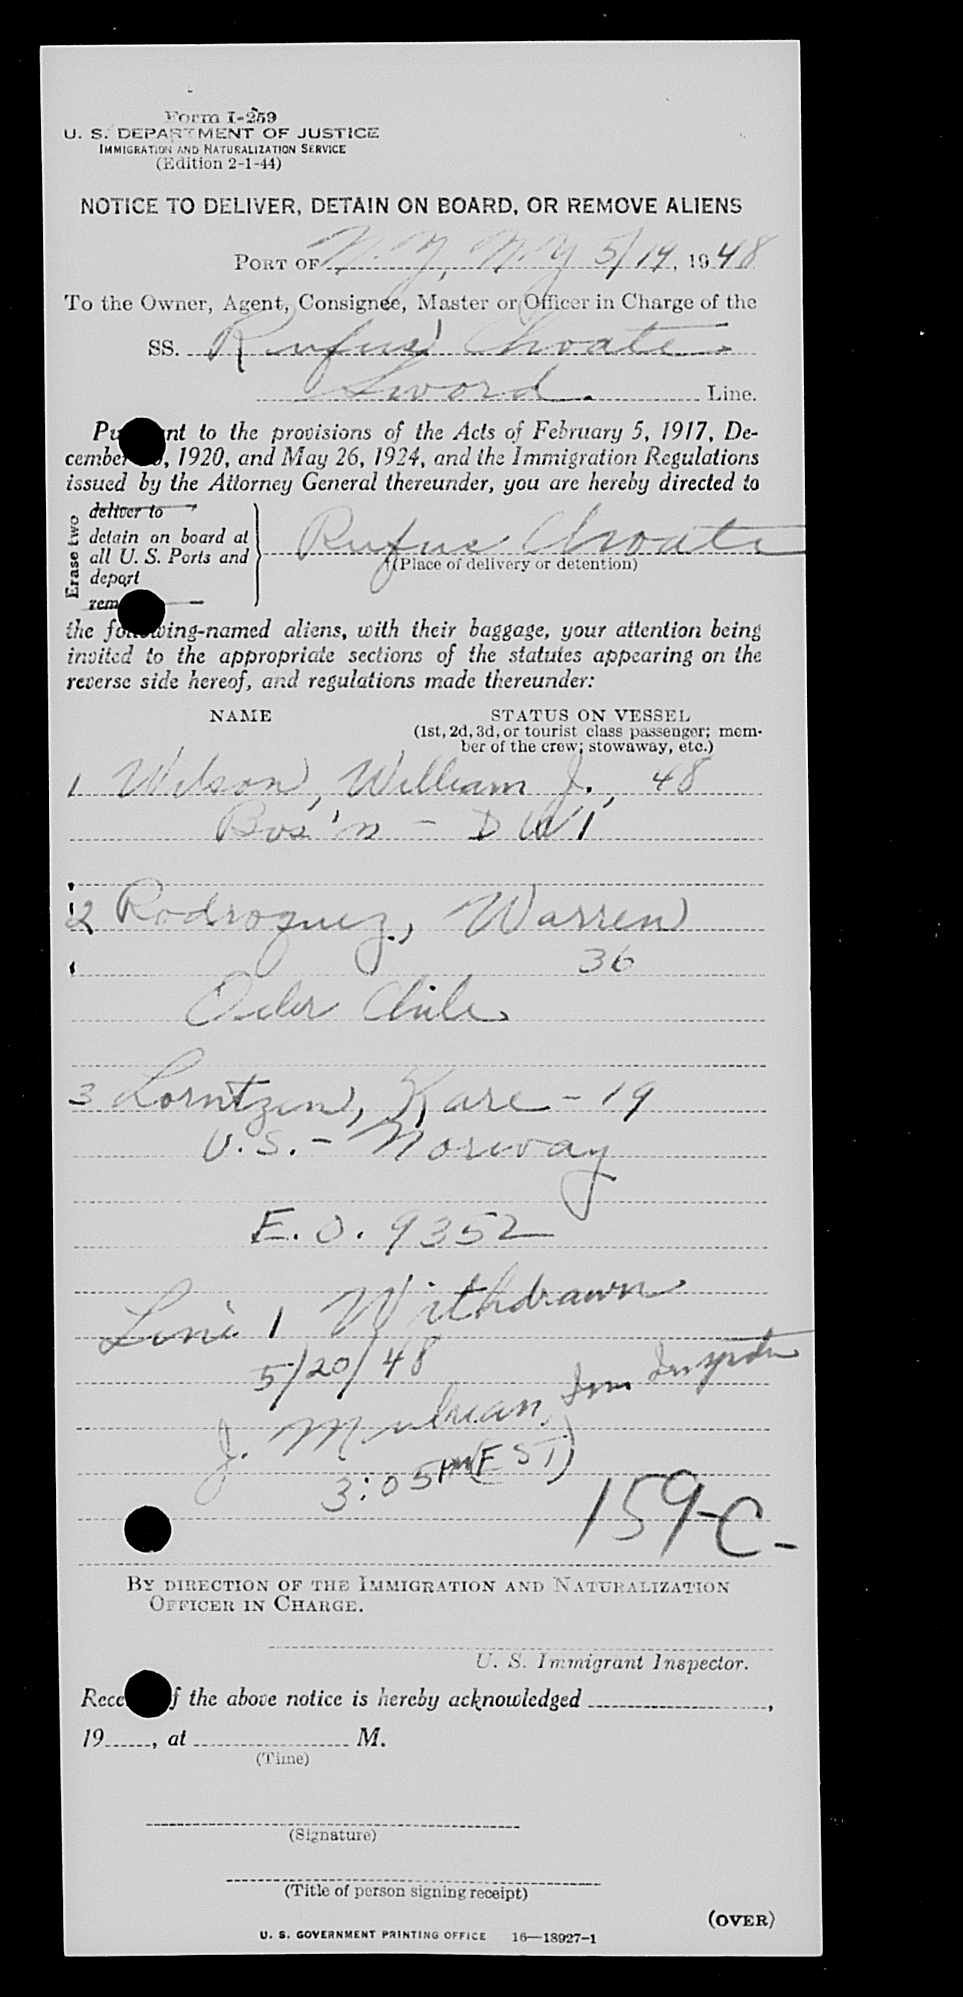 Form I-259
U. S. DEPARTMENT OF JUSTICE
IMMIGRATION AND NATURALIZATION SERVICE
(Edition 2-1-44)
NOTICE TO DELIVER, DETAIN ON BOARD, OR REMOVE ALIENS
PORT OF N.Y., N.Y 5/19, 1948
To the Owner, Agent, Consignee, Master or Officer in Charge of the
SS. Rufus Choate
Sword Line.
nt to the provisions of the Acts of February 5, 1917, De-
cember , 1920, and May 26, 1924, and the Immigration Regulations
issued by the Attorney General thereunder, you are hereby directed to
Erase two
deliver to
detain on board at
all U. S. Ports and
deport
rem
Rufus Choate
(Place of delivery or detention)
the following-named aliens, with their baggage, your attention being
invited to the appropriate sections of the statutes appearing on the
reverse side hereof, and regulations made thereunder:
NAME STATUS ON VESSEL
(1st, 2d, 3d, or tourist class passenger; mem-
ber of the crew; stowaway, etc.)
1 Wilson, William J., 48
Bos'n - DWI
2 Rodroquez, Warren
36
Oiler Chile
3 Lorntzen, Kare - 19
U.S. - Norway
E.O. 9352
Line 1 Withdrawn
5/20/48
J. Imm Inspctr
3:05 PM (EST)
159-C-
BY DIRECTION OF THE IMMIGRATION AND NATURALIZATION
OFFICER IN CHARGE.
U. S. Immigrant Inspector.
Rece f the above notice is hereby acknowledged ,
19 , at M.
(Time)
(Signature)
(Title of person signing receipt)
(OVER)
U. S. GOVERNMENT PRINTING OFFICE 16—18927-1